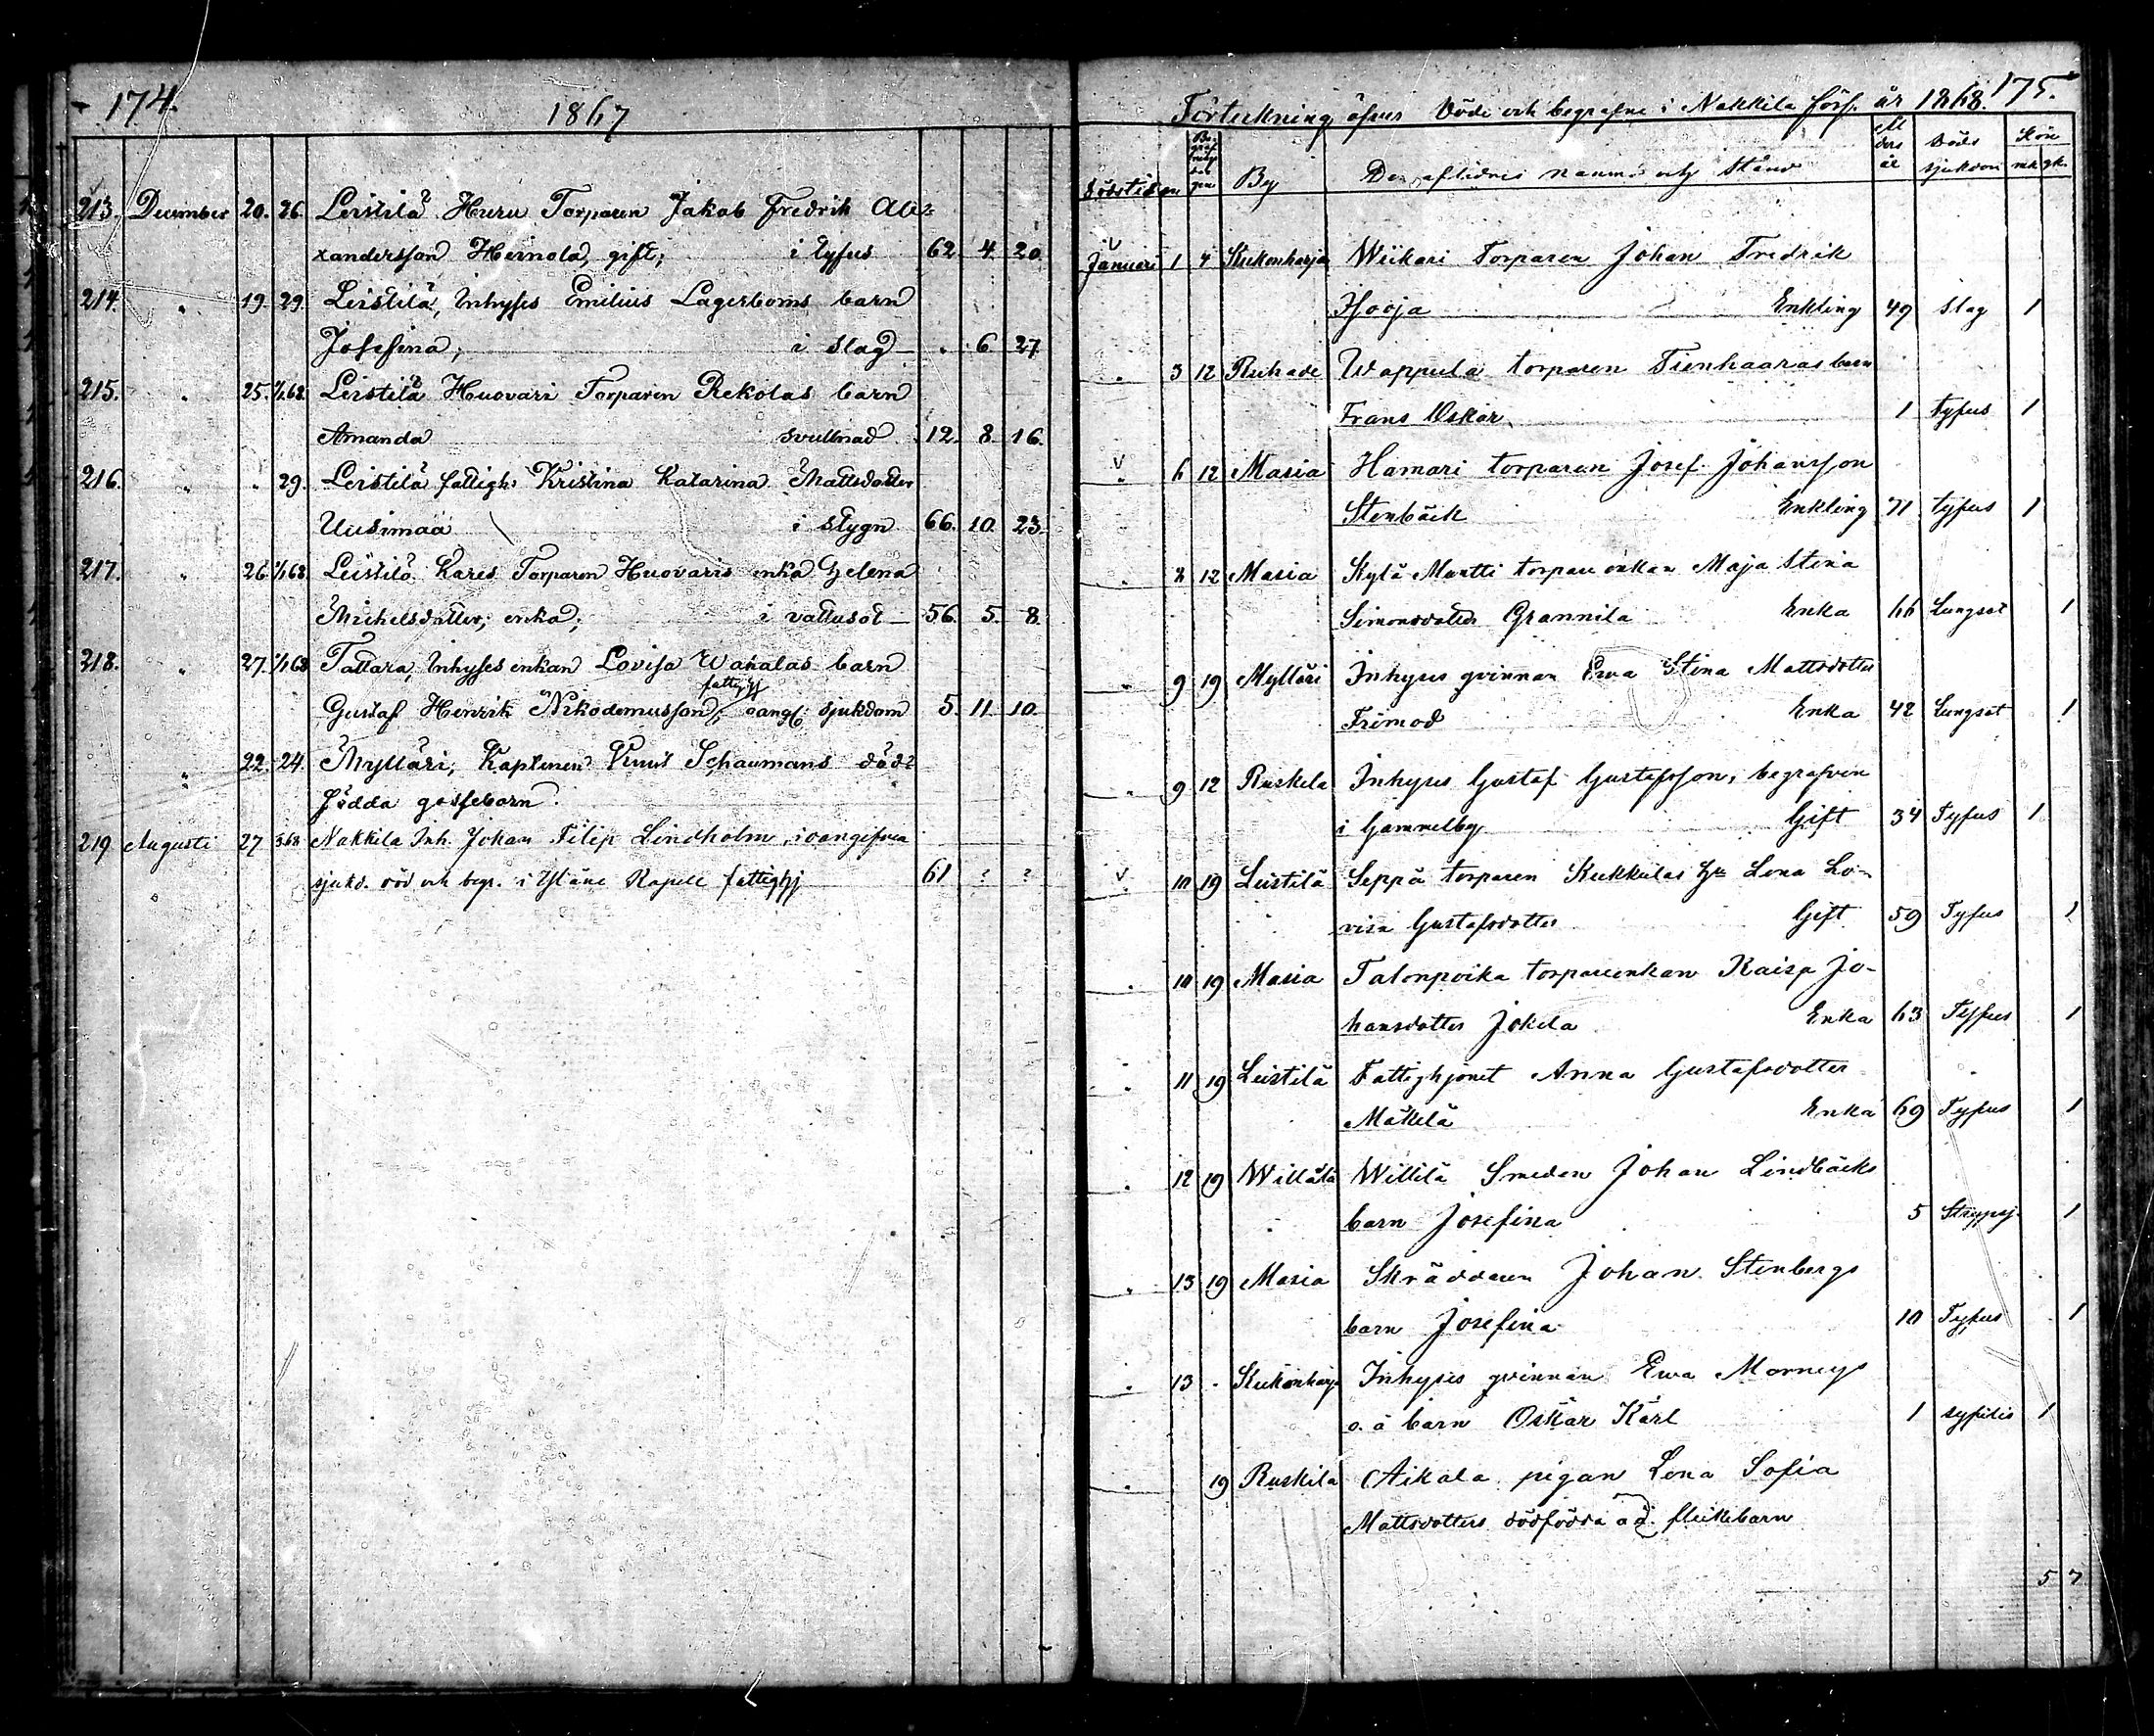 174.
1867
213. December 20. 26. Leistilä Huru Torparen Jakob Fredrik Ale=
xandersson Heinola, gift; i tyfus 62. 4. 20.
214. " 19. 29. Leistilä, Inhyses Emilius Lagerboms barn
Josefina; i slag . 6. 27.
215. " 25. 1/1 68. Leistilä Huovari Torparen Rekolas barn
Amanda svullnad 12. 8. 16.
216. " . 29. Leistilä fattigh: Kristina Katarina Mattsdotter
Uusimaa i stygn 66. 10. 23.
217. " 26. 1/1 68. Leistilä Kares Torparen Huovaris enka Helena
Mickelsdotter; enka; i vattusot 56. 5. 8.
218. " 27. 1/1 68 Tattara, Inhyses enkan Lovisa Wakalas barn
fattighj
Gustaf Henrik Nikodemusson; oang: sjukdom 5. 11. 10.
" 22. 24. Mylläri; Kaptenen Knut Schaumans död=
födda gossebarn.
219 Augusti 27 3.68 Nakkila Inh. Johan Filip Lindholm, i oangifven
sjukd. död och begr. i Yläne Kapell fattighj 61 ? ?
175.
Förteckning öfver Döde och begrafne i Nakkila förs. år 1868.
Dödstiden Begrafningsdagen By Den aflidnes namn och Stånd Ålders år Döds sjukdom Kön mk qk.
Januari 1 4 Kukonharja Wiikari Torparen Johan Fredrik
Isooja Enkling 49 Slag 1
" 3 12 Ruhade Wappula torparen Tienhaaras barn
Frans Oskar 1 tyfus 1
" 6 12 Masia Hamari torparen Josef Johansson
Stenbäck Enkling 71 tyfus 1
" 8 12 Masia Kylä Mantti torpareenkan Maja Stina
Simonsdotter Grannila Enka 66 Lungsot 1
" 9 19 Mylläri Inhyses qvinnan Ewa Stina Mattsdotter
Frimod Enka 42 Lungsot 1
" 9 12 Ruskela Inhyses Gustaf Gustafsson, begrafven
i Gammelby Gift 34 Tyfus 1
" 10 19 Leistilä Seppä torparen Kukkulas hu Lena Lo-
visa Gustafsdotter Gift 59 Tyfus 1
" 10 19 Masia Talonpoika torpareenkan Kaisa Jo-
hansdotter Jokela Enka 63 Tyfus 1
" 11 19 Leistilä Fattighjonet Anna Gustafsdotter
Mäkelä Enka 69 Tyfus 1
" 12 19 Willilä Willilä Smeden Johan Lindbäcks
barn Josefina 5 Strypsj. 1
" 13 19 Masia Skräddaren Johan Stenbergs
barn Josefina 10 Tyfus 1
" 13 . Kukonharja Inhyses qvinnan Ewa Morneys
o. ä barn Oskar Karl 1 syfilis 1
" 19 Ruskila Aikala pigan Lena Sofia
Mattsdotters dödfödda o ä. flickebarn
5 7